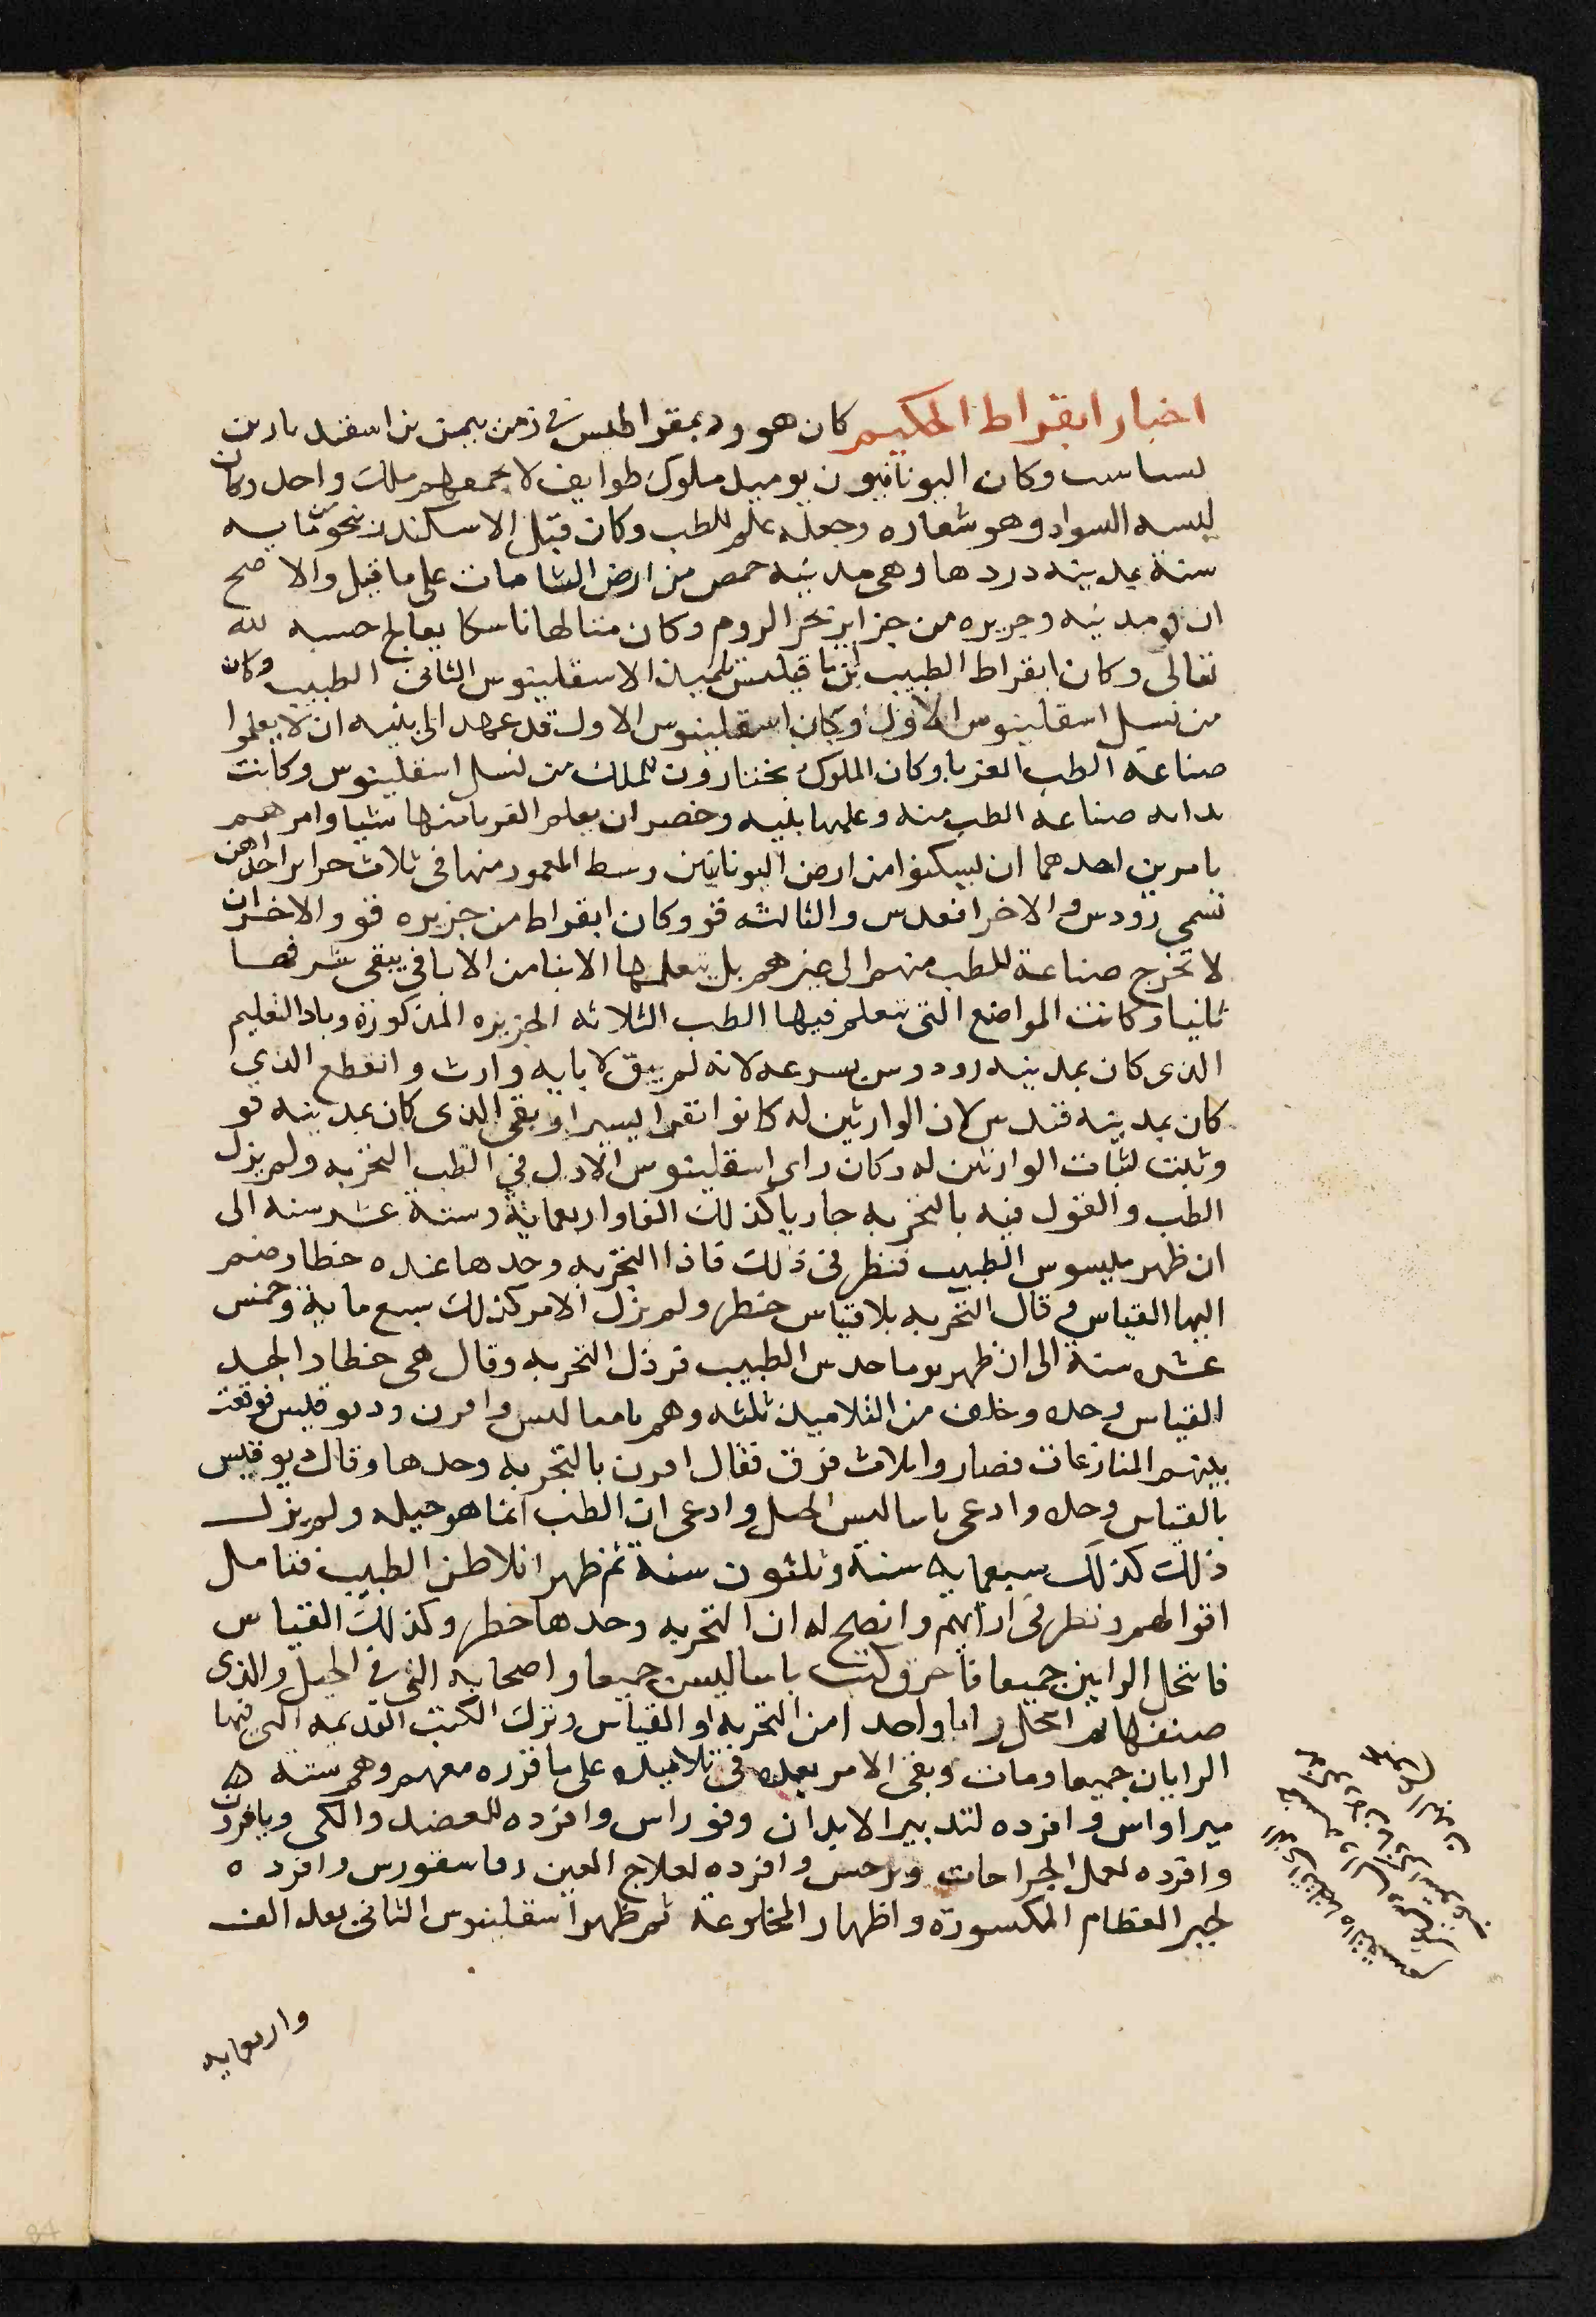 اخبار ابقراط الحكيم كان هو وديمقراطيس في زمن بهمن بن اسفنديار بن
لسباسب وكان اليونانيون يوميد ملوك طوايف لا يجمعهم ملك واحد وكان
لبسه السواد وهو شعاره وجعله علم للطب وكان قبل الاسكندر بنحو مايه
سنة بمدينه دردها وهي مدينه حمص من ارض الشامات على ما قيل والاصح
ان قو مدينه وجزيره من جزاير بحر الروم وكان متالها ناسكا يعالج حسبه لله
تعالى وكان ابقراط الطبيب ابن باقيلس تلميذ الاسقلينوس الثاني الطبيب وكان
من نسل اسقلينوس الاول وكان اسقلينوس الاول قد عهد الى بنيه ان لا يعلموا
صناعة الطب الغربا وكان الملوك يختارون للملك من نسل اسقلينوس وكانت
بدايه صناعه الطب منه وعلمها بنيه وحضر ان يعلم الغربا منها شيا وامرهم
بامرين احدهما ان ليسكنوا من ارض اليونانيين وسط المعمور منها في ثلاث جزاير احداهن
تسمي رودس والاخر افندس والثالثه قو وكان ابقراط من جزيره قو والاخر ان
لا تخرج صناعة للطب منهم الى غيرهم بل يتعلمها الابنا من الابا في يبقى شرفها
ثانيا وكانت المواضع التي تتعلم فيها الطب الثلاثه الجزيره المذكورة وباد التعليم
الذي كان بمدينه رودوس بسرعه لانه لم يبق لابايه وارث وانقطع الذي
كان بمدينه قندس لان الوارثين له كانوا نفرا يسيرا وبقى الذي كان بمدينه قو
وثبت لثبات الوارثين له وكان راى اسقلينوس الاول في الطب التجربه ولم يزل
الطب والقول فيه بالتجربه جاريا كذلك الفا واربعماية وستة عشر سنه الى
ان ظهر مينسوس الطبيب فنظر في ذلك فاذا التجربه وحدها عنده خطا وضم
اليها القياس وقال التجربه بلا قياس خطر ولم يزل الامر كذلك سبع ماية وخمس
عشر سنة الى ان ظهر برماحدس الطبيب فرذل التجربه وقال هي خطا والجد
القياس وحده وخلف من التلاميذ ثلثه وهم باساليس وامرن وديوقليس فوقعت
بينهم المنازعات فصاروا ثلاث فرق فقال امرن بالتجربه وحدها وقال ديوقيس
بالقياس وحده وادعى باساليس الحيل وادعى ان الطب انما هو حيله ولم يزل
ذلك كذلك سبعمايه سنة وثلثون سنة ثم ظهر افلاطن الطبيب فتامل
اقوالهم ونظر في ارائهم واتضح له ان التجربه وحدها خطر وكذلك القياس
فانتحل الرايين جميعا فاحرق كتب باساليس جميعا واصحابه التي في الحيل والذي
صنفها لم انتحل رايا واحدا من التجربه او القياس وترك الكتب القديمه التي فيها
الرايان جميعا ومات وبقى الامر بعده في تلاميذه على ما قرره معهم وهم ستة
ميراواس وافرده لتدبير الابدان وفوراس وافرده للفصد والكي وبافرن
وافرده لعمل الجراحات وبرجس وافرده لعلاج العين وفاسقورس وافرده
لجبر العظام المكسورة واظهار المخلوعة ثم ظهر اسقلينوس الثاني بعد الف
واربعمايه